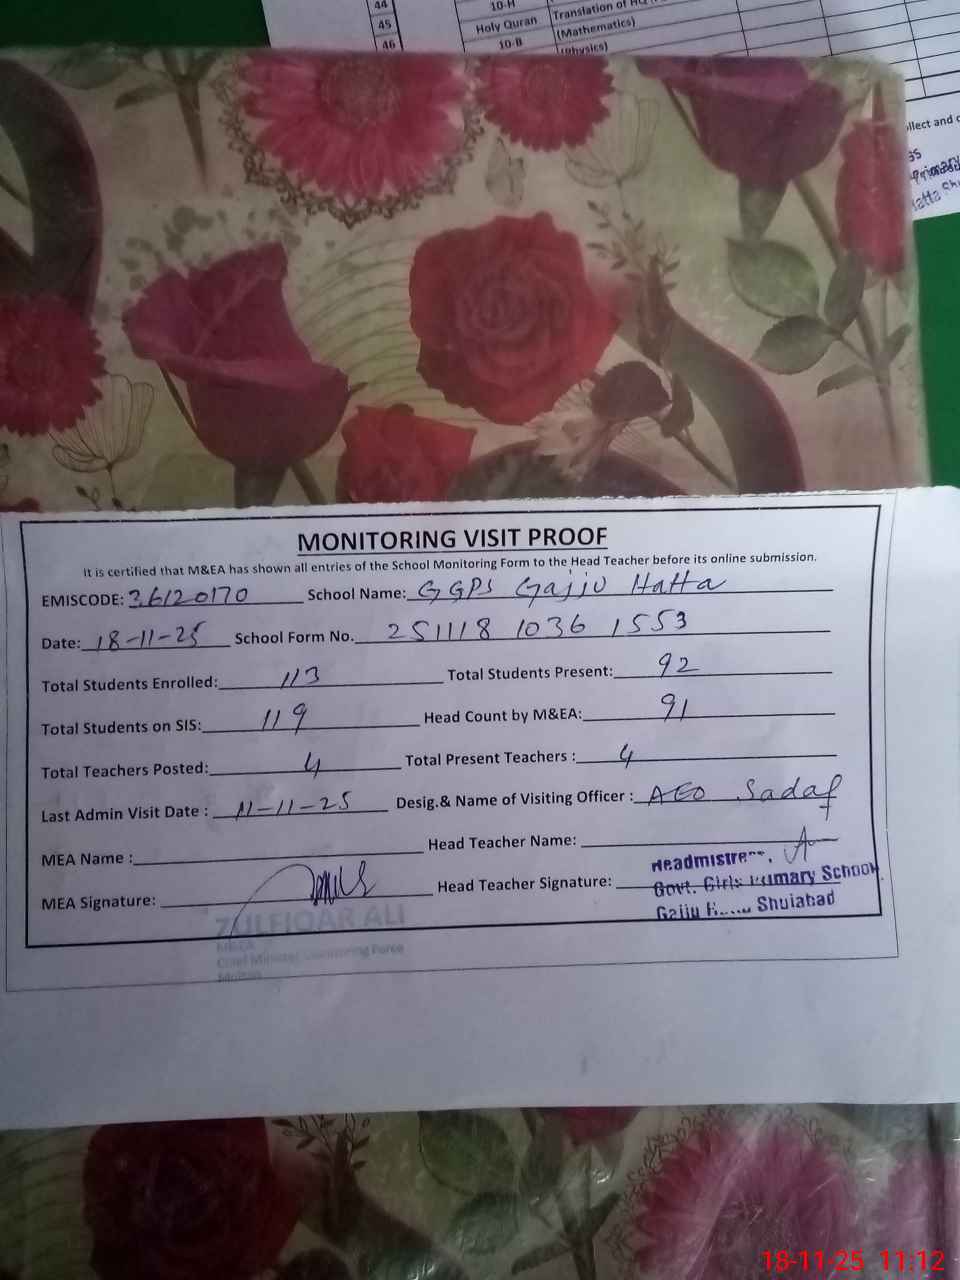 44
10-H
45
Holy Quran
Translation of
46
10-B
(Mathematics)
(physics)
llect and
MONITORING VISIT PROOF
It is certified that M&EA has shown all entries of the School Monitoring Form to the Head Teacher before its online submission.
EMISCODE: 36120170 School Name: GGPS Gajju Hatta
Date: 18-11-25 School Form No. 251118 1036 1553
Total Students Enrolled: 113 Total Students Present: 92
Total Students on SIS: 119 Head Count by M&EA: 91
Total Teachers Posted: 4 Total Present Teachers : 4
Last Admin Visit Date : 11-11-25 Desig.& Name of Visiting Officer : AEO Sadaf
MEA Name : Head Teacher Name:
MEA Signature: Head Teacher Signature:
Govt. Girls Primary School
Gajju Shujabad
ZULFIQAR ALI
Chief Minister Monitoring Force
Multan
18-11-25 11:12